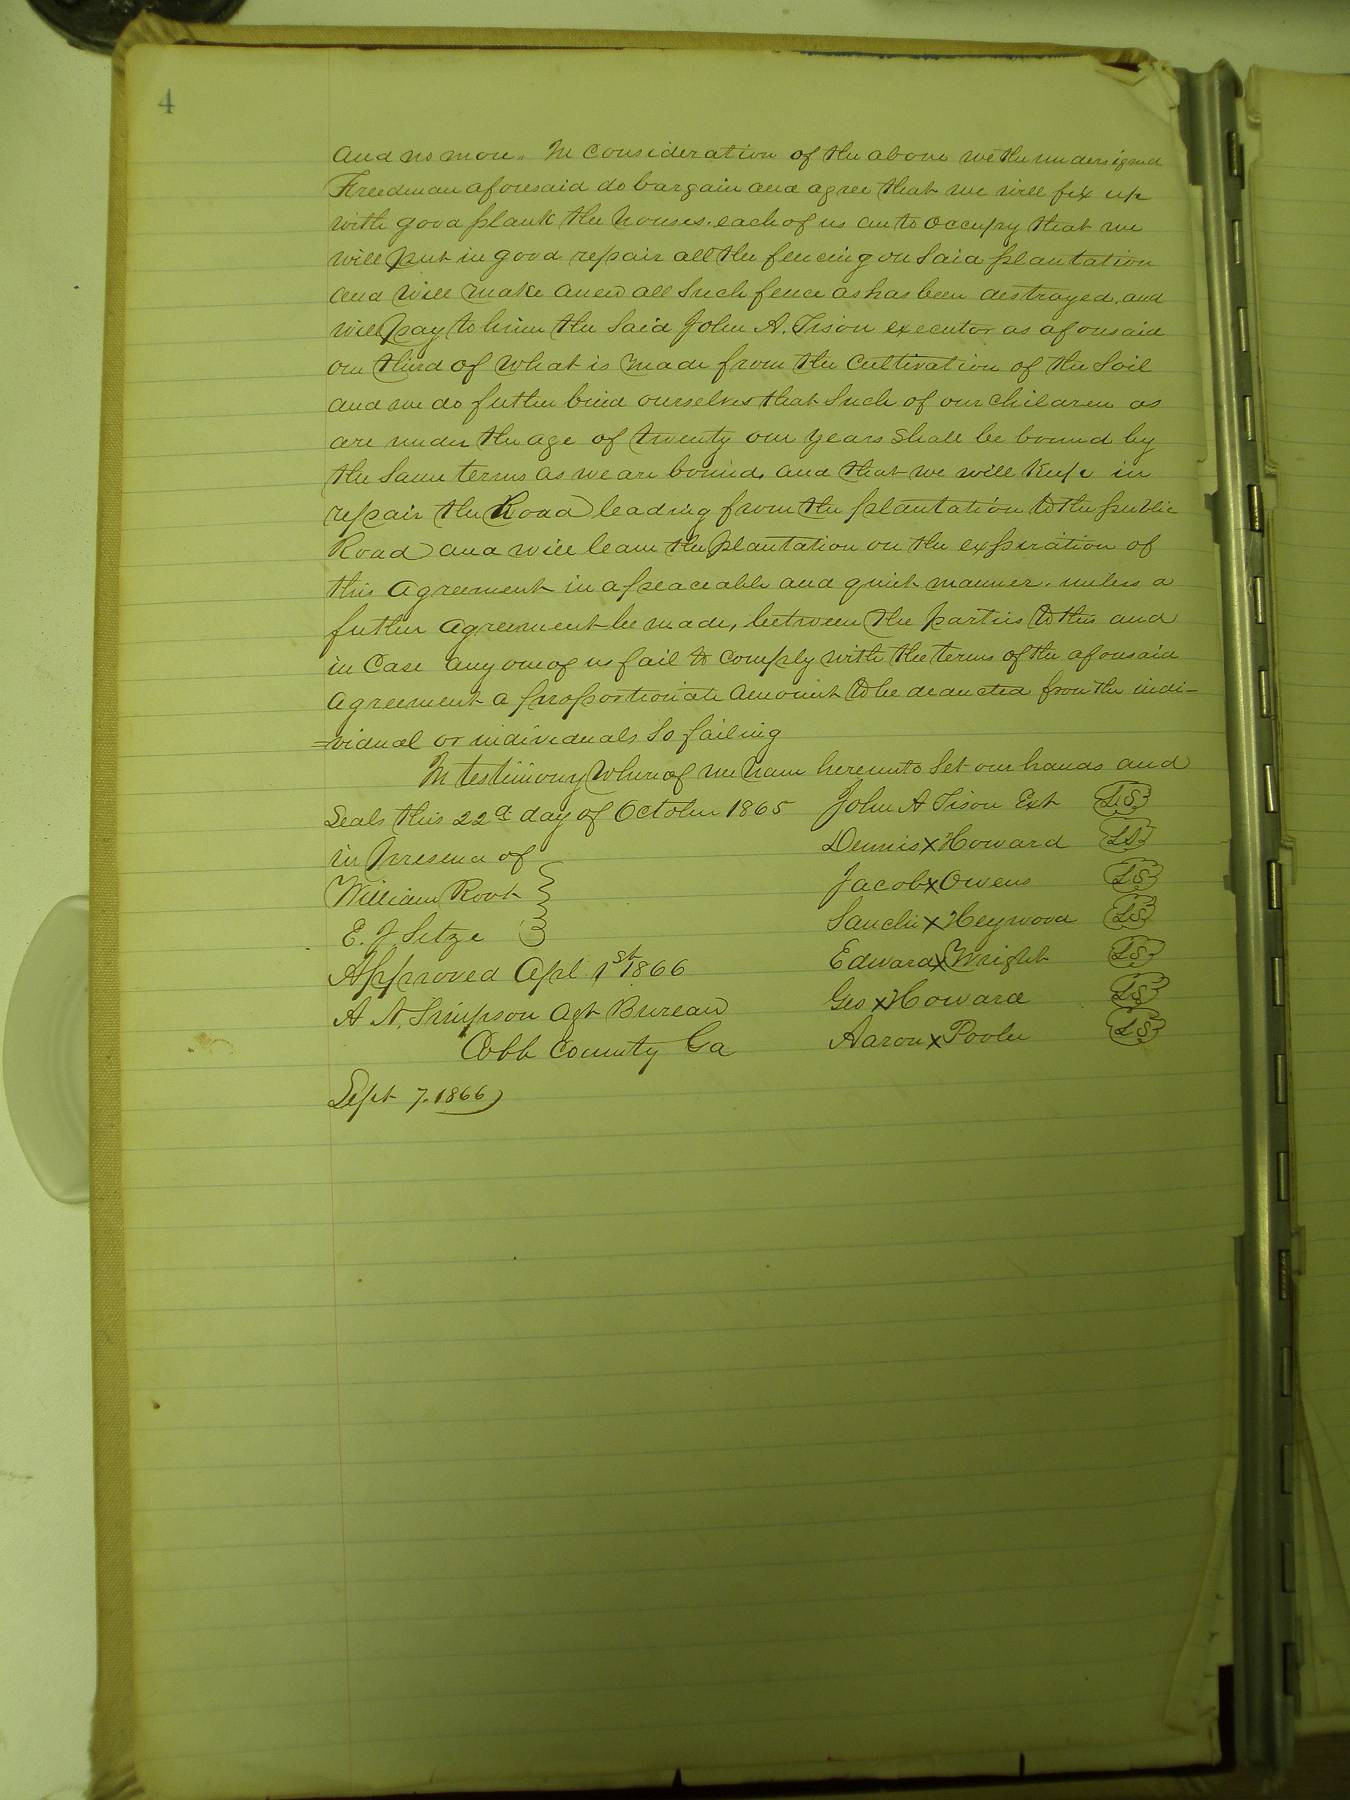 4
and no more. In consideration of the above we the undersigned
Freedman aforesaid do bargain and agree that we will fix up
with good plank the houses. each of us are to occupy that we
will put in good repair all the fencing on said plantation
and will make anew all such fence as has been destroyed. and
will pay to him the said John A. Tison executor as aforesaid
one third of what is made from the cultivation of the soil
and we do futher bind ourselves that such of our children as
are under the age of twenty one years shall be bound by
the same terms as we are bound, and that we will keep in
repair the Road leading from the plantation to the public
Road and will leave the plantation on the expiration of
this agreement in a peaceable and quiet manner. unless a
futher agreement be made, between the parties to this and
in case any one of us fail to comply with the terms of the aforesaid
agreement a proportionate amount to be deducted from the indi-
=vidual or individuals so failing
In testimony whereof we have hereunto set our hands and
Seals this 22d day of October 1865 John A Tison Ext LS
in presence of Dennis x Howard LS
William Root Jacob x Owens LS
E. J Setze x Heywood LS
Approved Apl 1st 1866 Edward x Wright LS
A A. Simpson Agt Bureau Geo x Howard LS
Cobb County Ga Aaron x Pooler LS
Sept 7. 1866